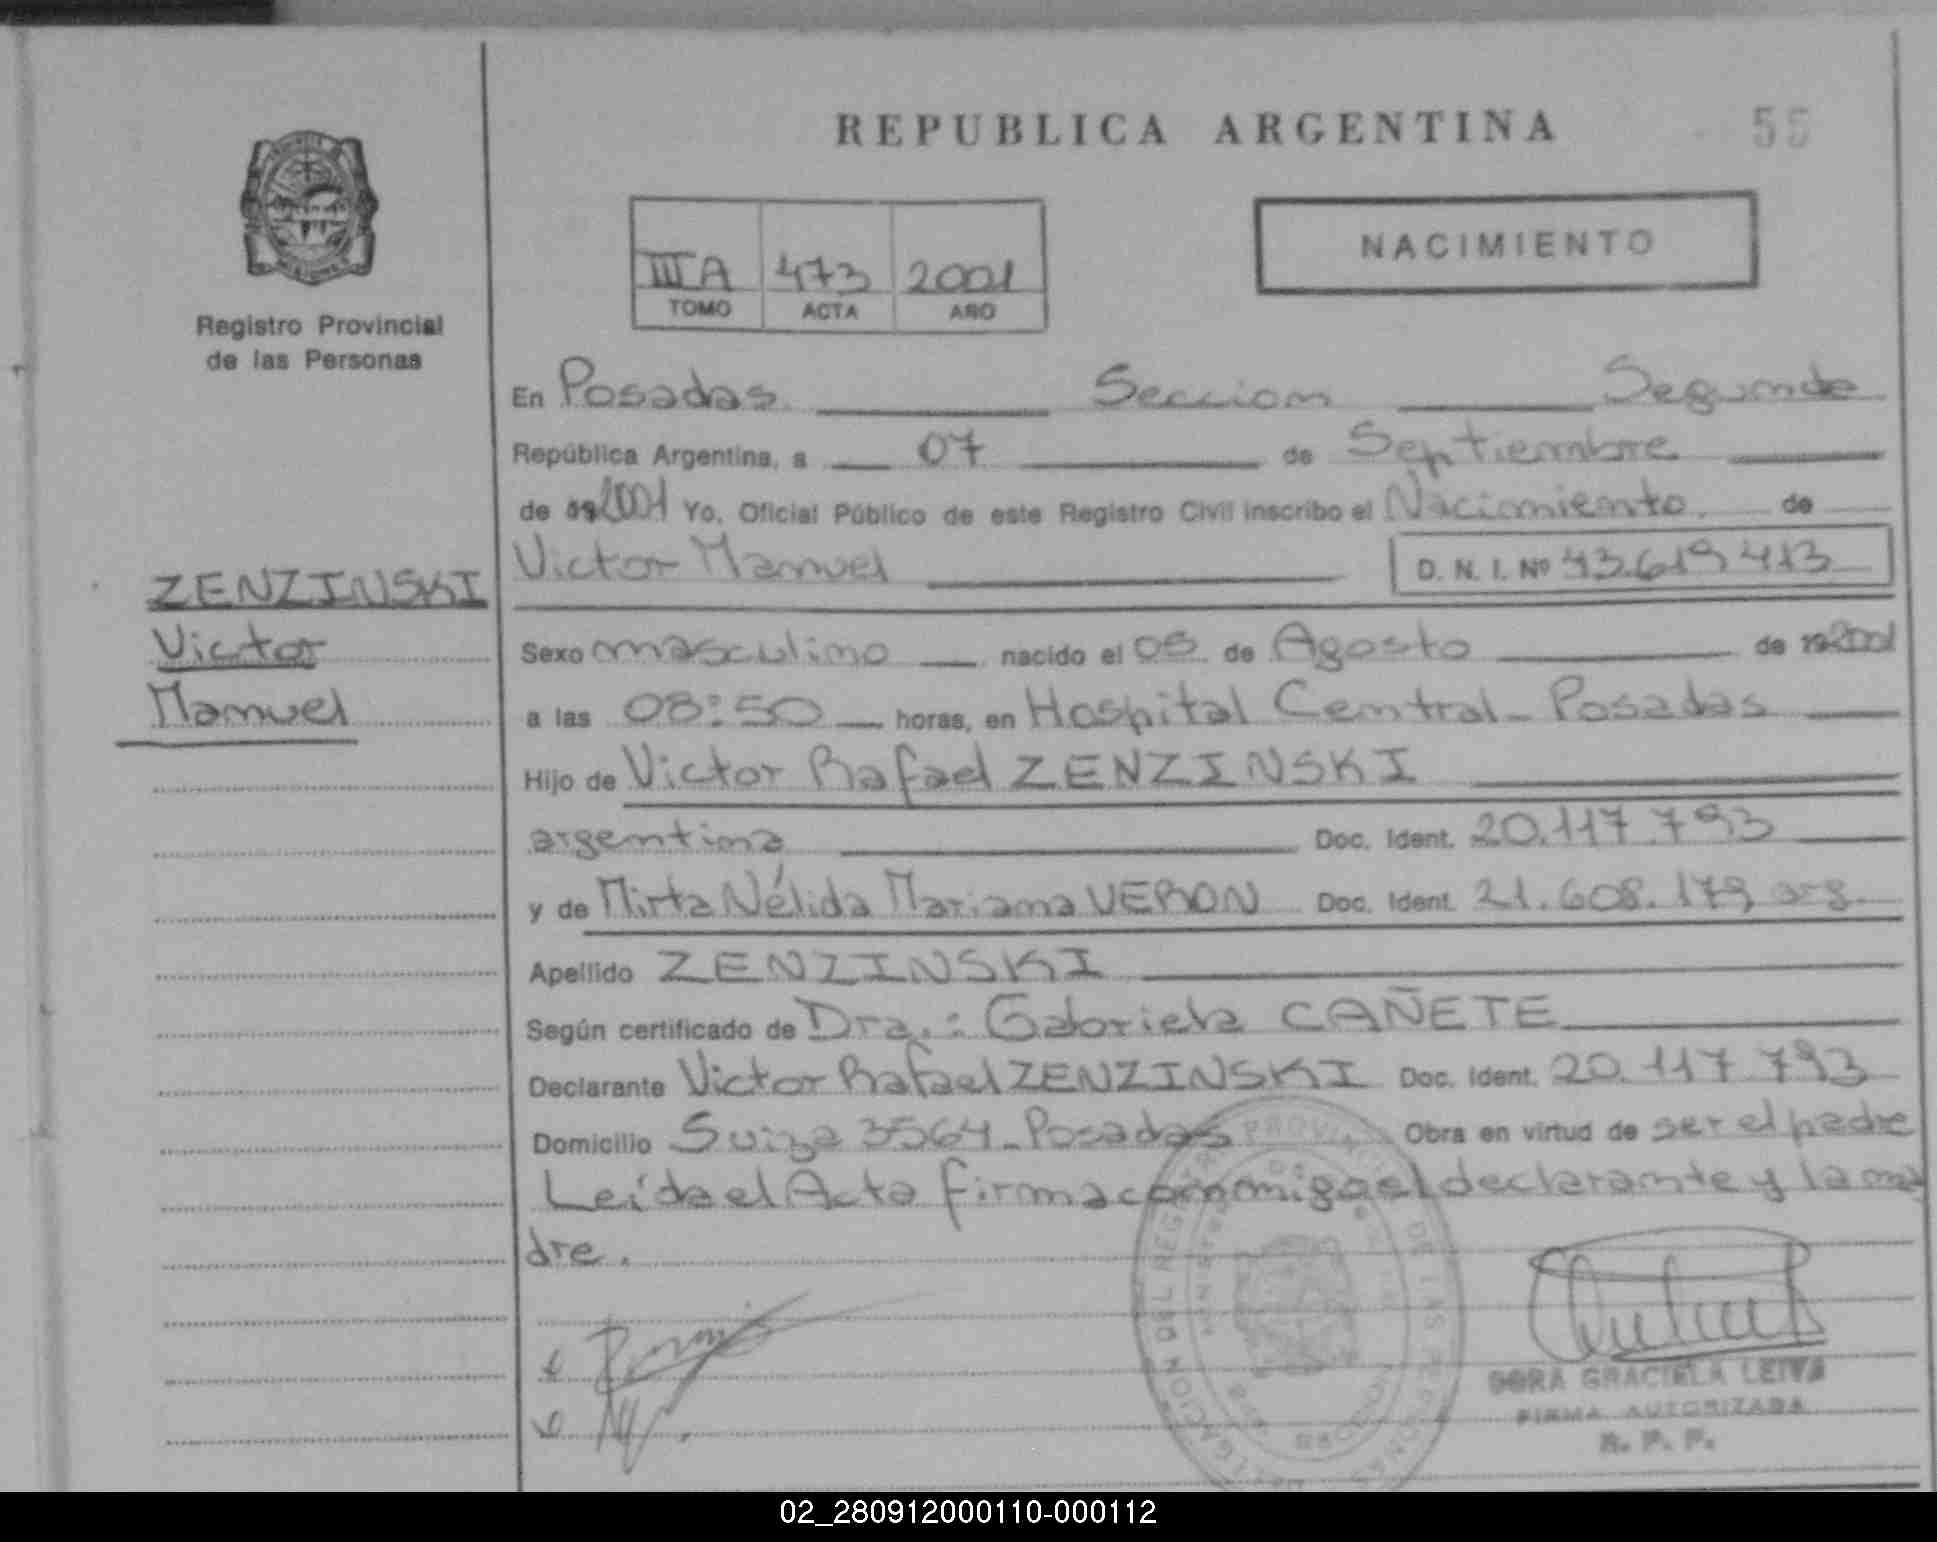 REPUBLICA ARGENTINA
55
Registro Provincial
de las Personas
IIIA 473 2001
TOMO ACTA AÑO
NACIMIENTO
En Posadas Seccion Segunda
República Argentina, a 07 de Septiembre
de 2001 Yo, Oficial Público de este Registro Civil inscribo el Nacimiento de
ZENZINSKI
Victor
Manuel
Victor Manuel D. N. I. Nº 43.619 413
Sexo masculino nacido el 05 de Agosto de 2001
a las 08:50 horas, en Hospital Central - Posadas
Hijo de Victor Rafael ZENZINSKI
argentina Doc. Ident. 20.117.793
y de Mirta Nélida Mariana VERON Doc. Ident. 21.608.179 arg.
Apellido ZENZINSKI
Según certificado de Dra.: Gabriela CAÑETE
Declarante Victor Rafael ZENZINSKI Doc. Ident. 20.117 793
Domicilio Suiza 3564 - Posadas Obra en virtud de ser el padre
Leída el Acta firma conmigo el declarante y la ma
dre.
DORA GRACIELA LEIVA
FIRMA AUTORIZADA
R. P. P.
02_280912000110-000112